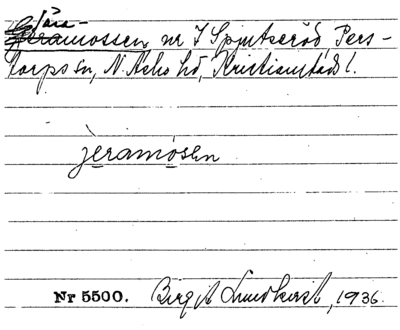 Tära-
Geramossen, nr 7 Spjutseröd, Pers-
torps sn, N. Åsbo hd, Kristianstads l.
jeramósen
Nr 5500. Birgit Lundkvist, 1936.